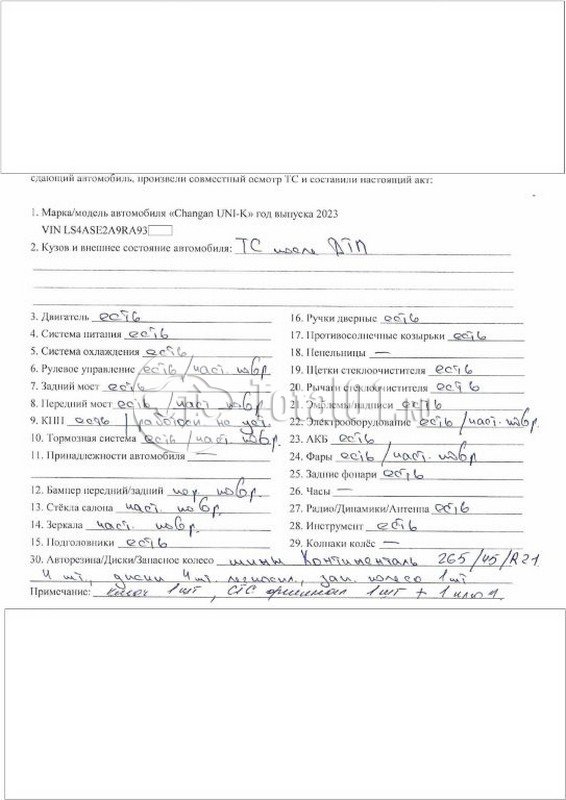 сдающий автомобиль, произвели совместный осмотр ТС и составили настоящий акт:
1. Марка/модель автомобиля «Changan UNI-K» год выпуска 2023
VIN LS4ASE2A9RA93
2. Кузов и внешнее состояние автомобиля: ТС после ДТП
3. Двигатель есть
4. Система питания есть
5. Система охлаждения есть
6. Рулевое управление есть/част. повр.
7. Задний мост есть
8. Передний мост есть/част. повр.
9. КПП есть / работой не уст.
10. Тормозная система есть/част. повр.
11. Принадлежности автомобиля —
12. Бампер передний/задний пер. повр.
13. Стёкла салона част. повр.
14. Зеркала част. повр.
15. Подголовники есть
16. Ручки дверные есть
17. Противосолнечные козырьки есть
18. Пепельницы —
19. Щетки стеклоочистителя есть
20. Рычаги стеклоочистителя есть
21. Эмблемы/надписи есть
22. Электрооборудование есть/част. повр.
23. АКБ есть
24. Фары есть/част. повр.
25. Задние фонари есть
26. Часы —
27. Радио/Динамики/Антенна есть
28. Инструмент есть
29. Колпаки колёс —
30. Авторезина/Диски/Запасное колесо шины Континенталь 265/45/R21
4 шт, диски 4 шт. легкоспл., зап. колесо 1 шт
Примечание: ключ 1 шт, СТС оригинал 1 шт + 1 ключ